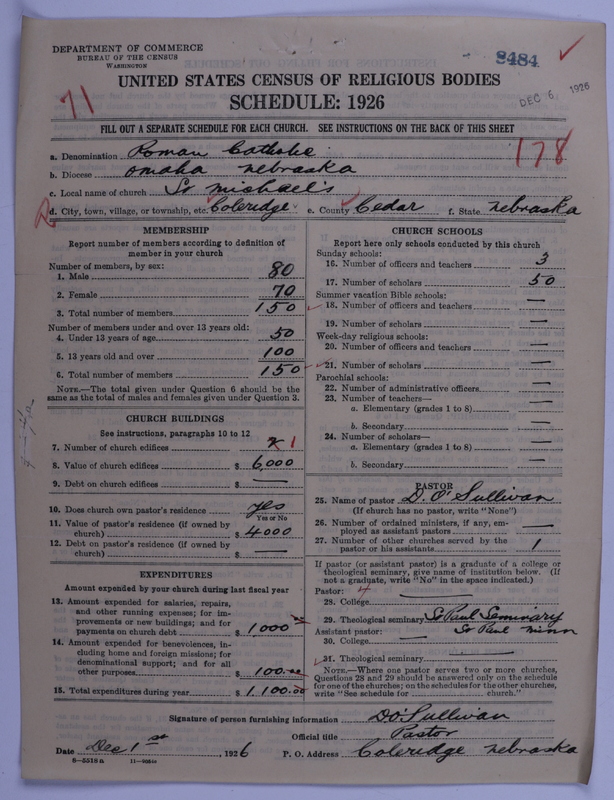 DEPARTMENT OF COMMERCE
BUREAU OF THE CENSUS
WASHINGTON
8484
DEC 6 1926
UNITED STATES CENSUS OF RELIGIOUS BODIES
SCHEDULE: 1926
71
FILL OUT A SEPARATE SCHEDULE FOR EACH CHURCH. SEE INSTRUCTIONS ON THE BACK OF THIS SHEET
178
a. Denomination Roman Catholic
b. Diocese Omaha Nebraska
c. Local name of church St Michael's
d. City, town, village, or township, etc. Coleridge e. County Cedar f. State Nebraska
MEMBERSHIP
Report number of members according to definition of
member in your church
Number of members, by sex:
1. Male 80
2. Female 70
3. Total number of members 150
Number of members under and over 13 years old:
4. Under 13 years of age 50
5. 13 years old and over 100
6. Total number of members 150
NOTE.—The total given under Question 6 should be
same as the total of males and females given under Question 3.
CHURCH BUILDINGS
See instructions, paragraphs 10 to 12
7. Number of church edifices 1
8. Value of church edifices $ 6,000
9. Debt on church edifices $ —
10. Does church own pastor's residence yes
Yes or No
11. Value of pastor's residence (if owned by
church) $ 4000
12. Debt on pastor's residence (if owned by
church) $ —
EXPENDITURES
Amount expended by your church during last fiscal year
13. Amount expended for salaries, repairs,
and other running expenses; for im-
provements or new buildings; and for
payments on church debt $ 1000
14. Amount expended for benevolences, in-
cluding home and foreign missions; for
denominational support; and for all
other purposes $ 100.00
15. Total expenditures during year $ 1,100.00
CHURCH SCHOOLS
Report here only schools conducted by this church
Sunday schools:
16. Number of officers and teachers 3
17. Number of scholars 50
Summer vacation Bible schools:
18. Number of officers and teachers —
19. Number of scholars —
Week-day religious schools:
20. Number of officers and teachers —
21. Number of scholars —
Parochial schools:
22. Number of administrative officers —
23. Number of teachers—
a. Elementary (grades 1 to 8) —
b. Secondary —
24. Number of scholars—
a. Elementary (grades 1 to 8) —
b. Secondary —
PASTOR
25. Name of pastor D. O'Sullivan
(If church has no pastor, write "None")
26. Number of ordained ministers, if any, em-
ployed as assistant pastors —
27. Number of other churches served by the
pastor or his assistants 1
If pastor (or assistant pastor) is a graduate of a college or
theological seminary, give name of institution below. (If
not a graduate, write "No" in the space indicated.)
Pastor: 4
28. College —
29. Theological seminary St Paul Seminary
Assistant pastor: St Paul Minn
30. College —
31. Theological seminary —
NOTE.—Where one pastor serves two or more churches,
Questions 28 and 29 should be answered only on the schedule
for one of the churches; on the schedules for the other churches,
write "See schedule for church."
Signature of person furnishing information D O'Sullivan
Official title Pastor
Date Dec 1st, 1926 P. O. Address Coleridge Nebraska
8—5518a